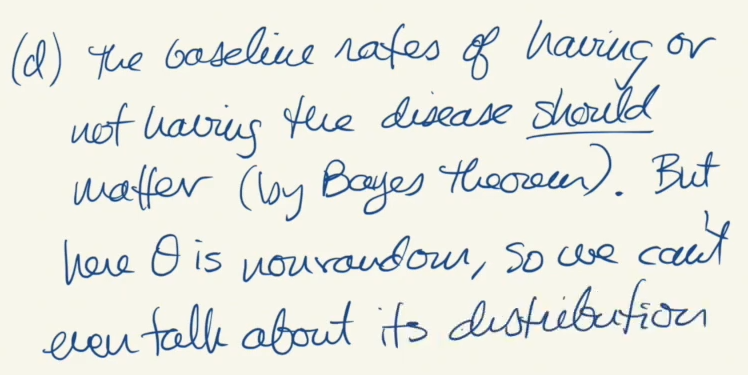 (d) The baseline rates of having or
not having the disease should
matter (by Bayes theorem). But
here θ is nonrandom, so we can't
even talk about its distribution